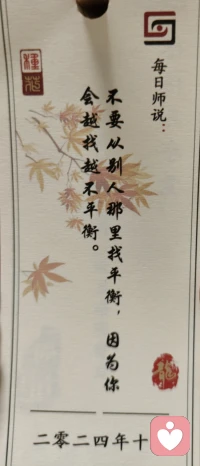 每日师说：
不要从别人那里找平衡，因为你
会越找越不平衡。
二零二四年十